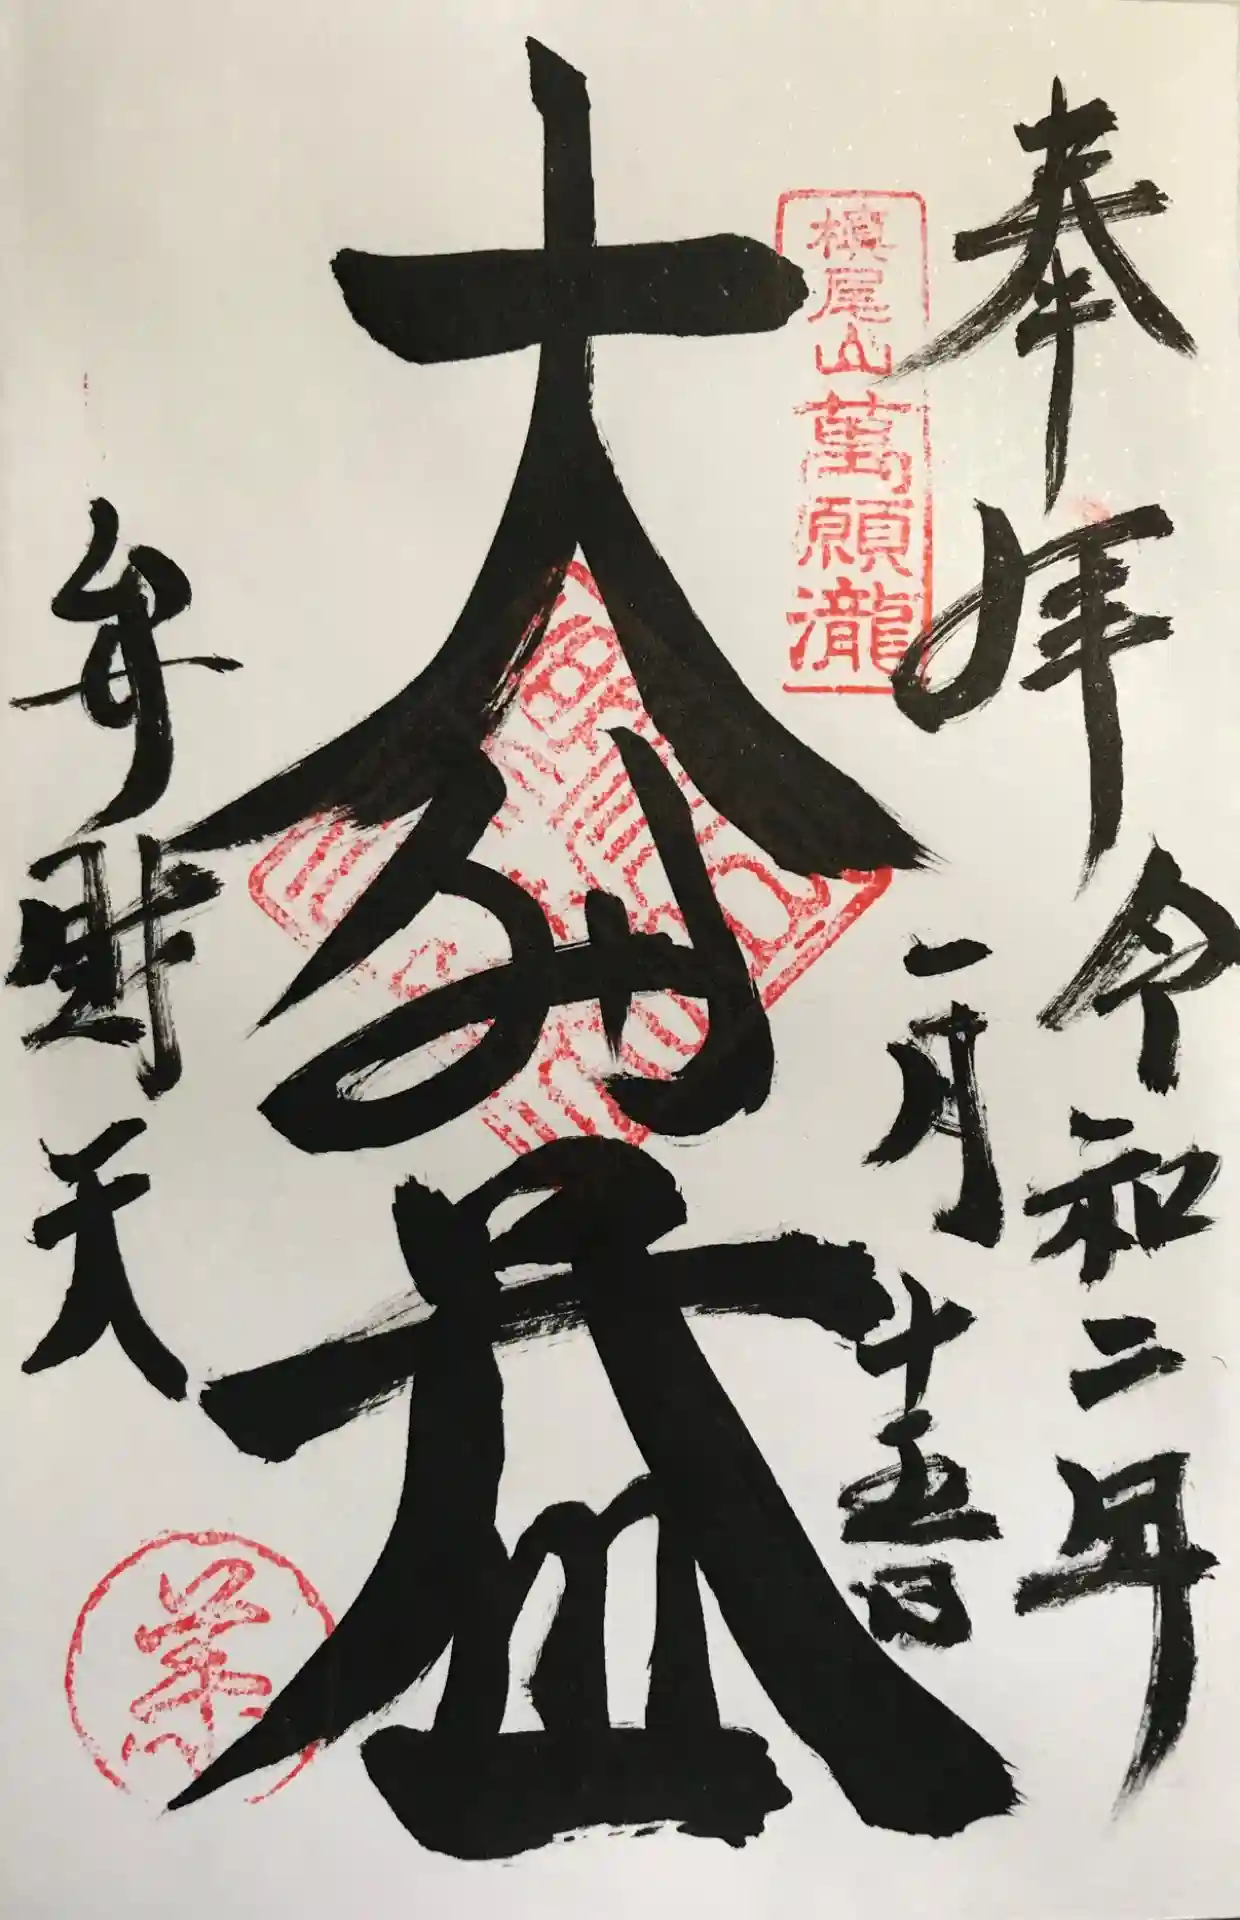 奉拝
令和二年
一月
十五日
槇尾山萬願瀧
大益
弁財天